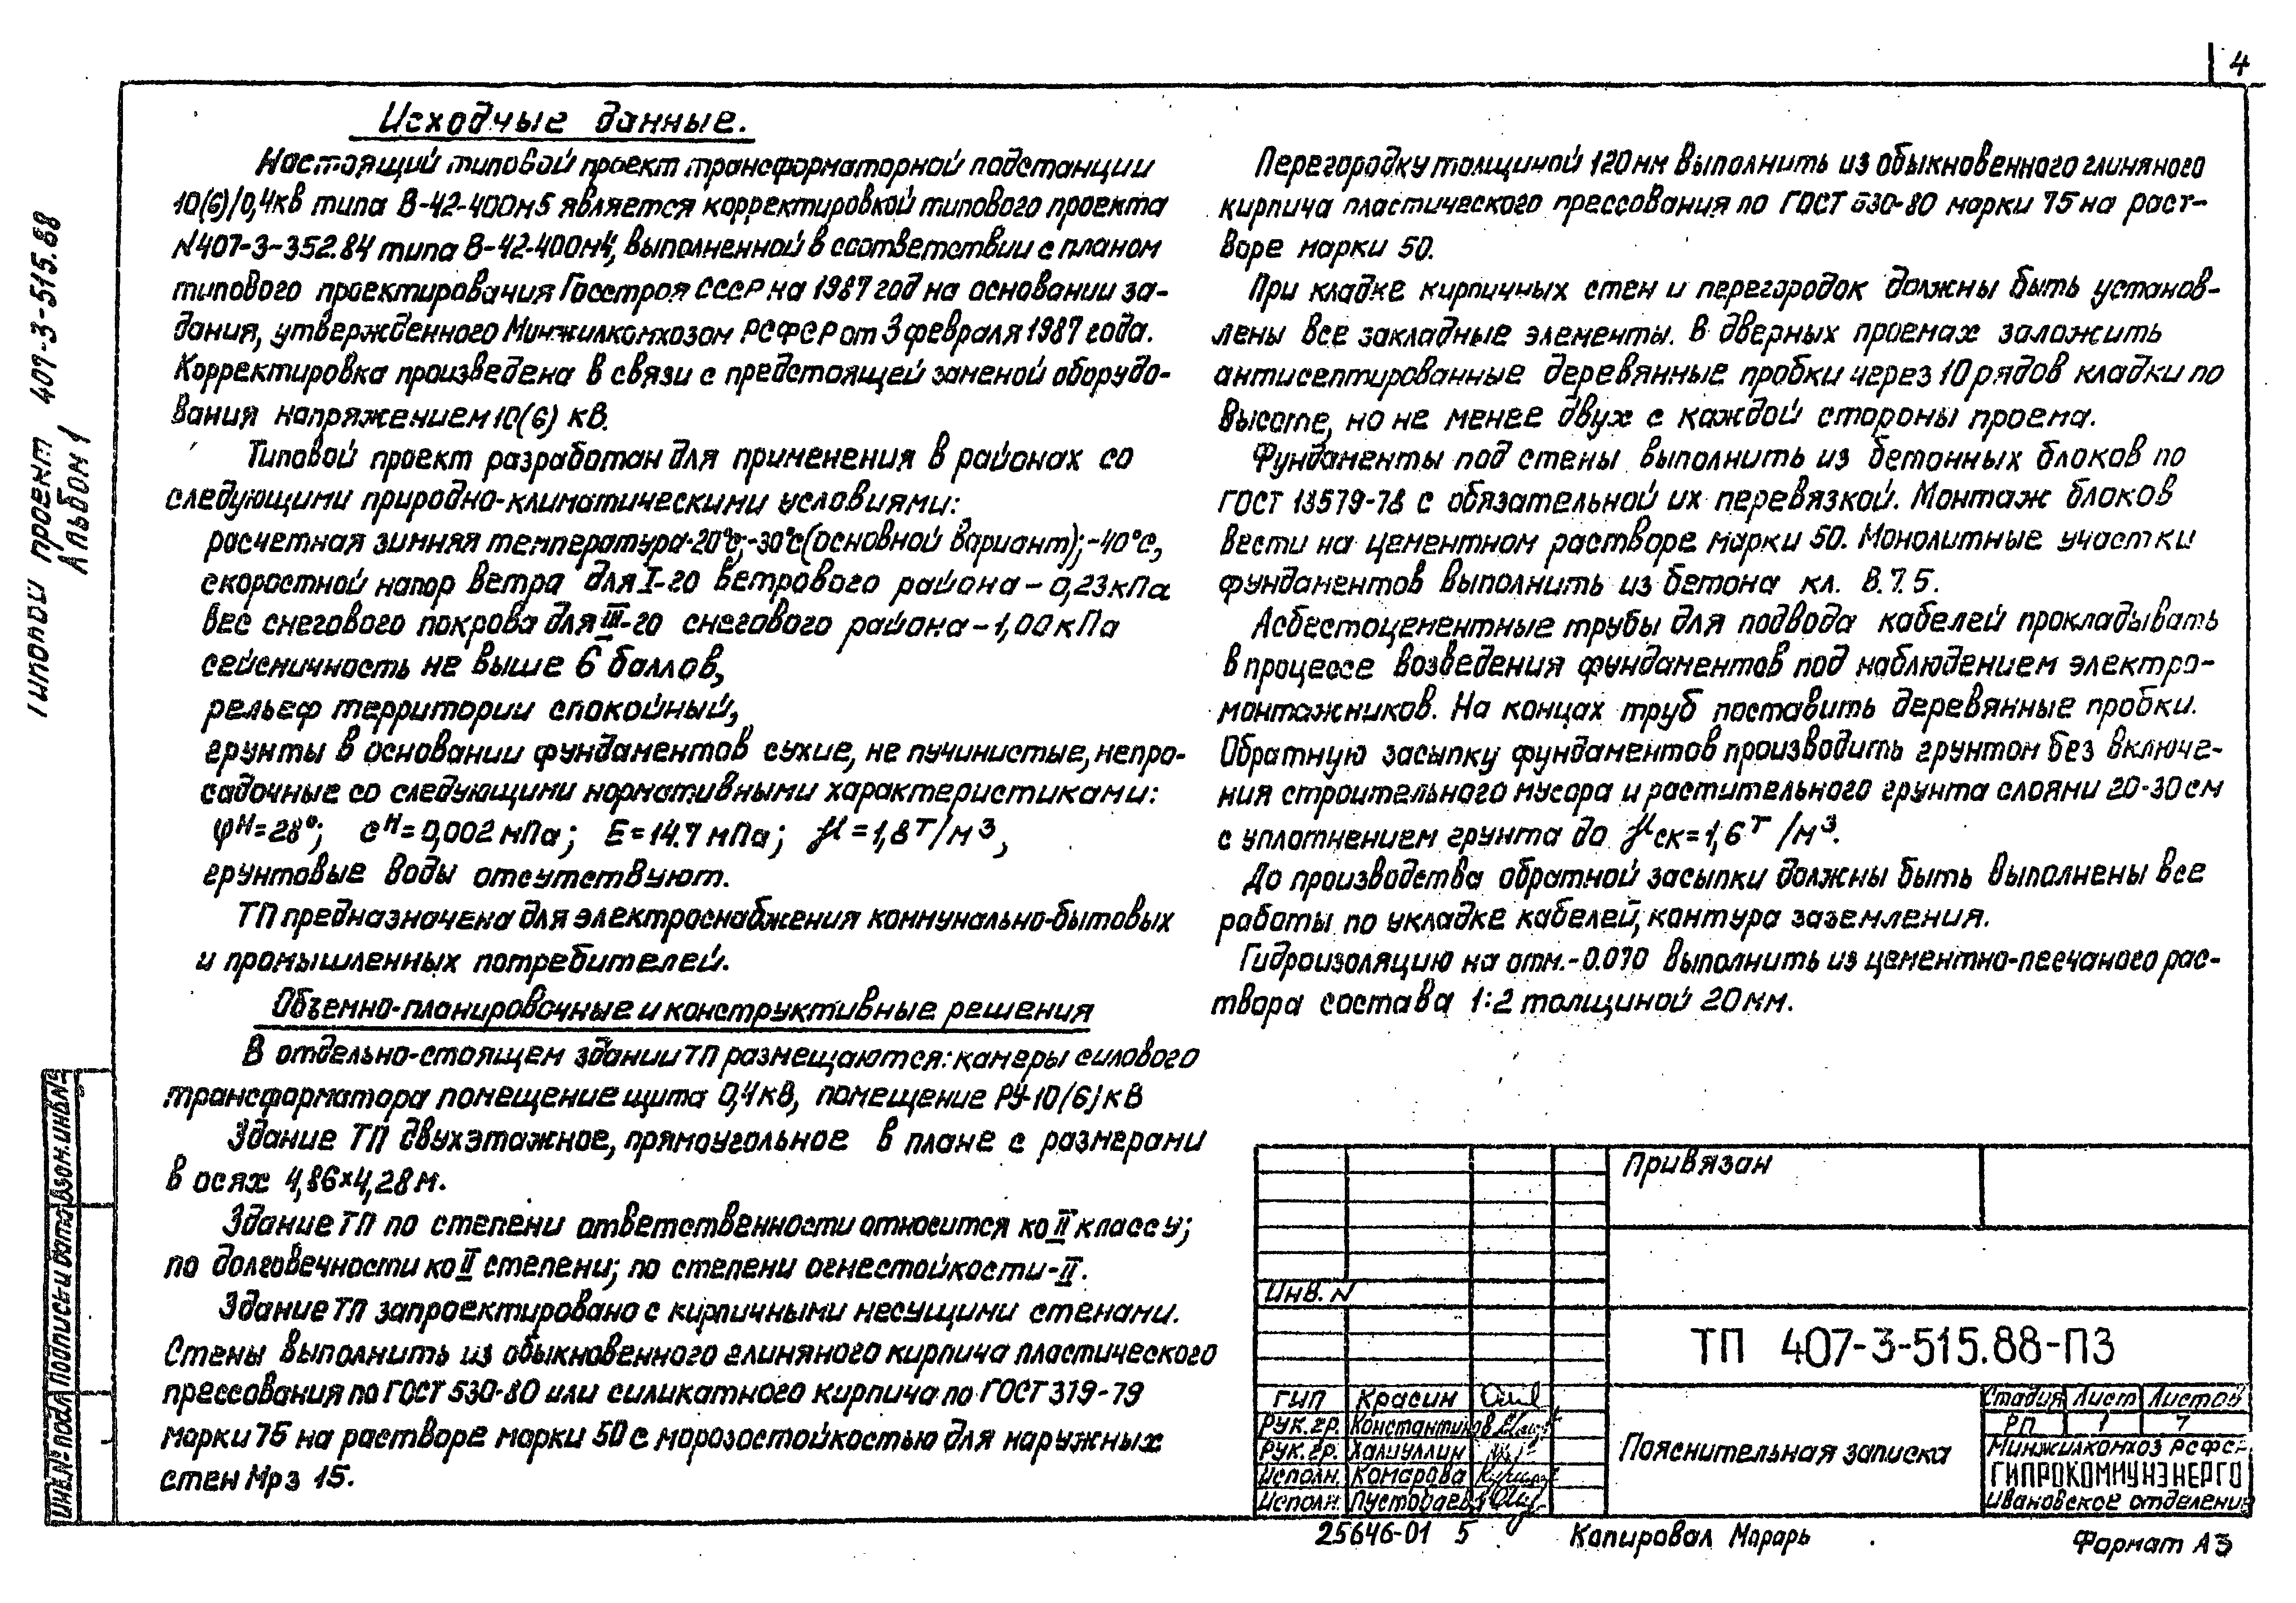 4
Типовой проект 407-3-515.88
Альбом 1
Исходные данные.
Настоящий типовой проект трансформаторной подстанции
10(6)/0,4кв типа В-42-400м5 является корректировкой типового проекта
N407-3-352.84 типа В-42-400м4, выполненной в соответствии с планом
типового проектирования Госстроя СССР на 1987 год на основании за-
дания, утвержденного Минжилкомхозом РСФСР от 3 февраля 1987 года.
Корректировка произведена в связи с предстоящей заменой оборудо-
вания напряжением 10(6) кВ.
Типовой проект разработан для применения в районах со
следующими природно-климатическими условиями:
расчетная зимняя температура-20°с;-30°с(основной вариант);-40°с,
скоростной напор ветра для I-го ветрового района - 0,23кПа
вес снегового покрова для III-го снегового района - 1,00кПа
сейсмичность не выше 6 баллов,
рельеф территории спокойный,
грунты в основании фундаментов сухие, не пучинистые, непро-
садочные со следующими нормативными характеристиками:
φᴴ=28°; сᴴ=0,002мПа; Е=14.7мПа; γ=1,8т/м³,
грунтовые воды отсутствуют.
ТП предназначена для электроснабжения коммунально-бытовых
и промышленных потребителей.
Объемно-планировочные и конструктивные решения
В отдельно-стоящем здании ТП размещаются: камеры силового
трансформатора помещение щита 0,4кВ, помещение РУ-10(6)кВ
Здание ТП двухэтажное, прямоугольное в плане с размерами
в осях 4,86×4,28м.
Здание ТП по степени ответственности относится ко II классу;
по долговечности ко II степени; по степени огнестойкости-II.
Здание ТП запроектировано с кирпичными несущими стенами.
Стены выполнить из обыкновенного глиняного кирпича пластического
прессования по ГОСТ 530-80 или силикатного кирпича по ГОСТ 379-79
марки 75 на растворе марки 50 с морозостойкостью для наружных
стен Мрз 15.
Перегородку толщиной 120мм выполнить из обыкновенного глиняного
кирпича пластического прессования по ГОСТ 530-80 марки 75 на раст-
воре марки 50.
При кладке кирпичных стен и перегородок должны быть установ-
лены все закладные элементы. В дверных проемах заложить
антисептированные деревянные пробки через 10 рядов кладки по
высоте, но не менее двух с каждой стороны проема.
Фундаменты под стены выполнить из бетонных блоков по
ГОСТ 13579-78 с обязательной их перевязкой. Монтаж блоков
вести на цементном растворе марки 50. Монолитные участки
фундаментов выполнить из бетона кл. В.7.5.
Асбестоцементные трубы для подвода кабелей прокладывать
в процессе возведения фундаментов под наблюдением электро-
монтажников. На концах труб поставить деревянные пробки.
Обратную засыпку фундаментов производить грунтом без включе-
ния строительного мусора и растительного грунта слоями 20-30см
с уплотнением грунта до γск=1,6т/м³.
До производства обратной засыпки должны быть выполнены все
работы по укладке кабелей, контура заземления.
Гидроизоляцию на отм.-0.070 выполнить из цементно-песчаного рас-
твора состава 1:2 толщиной 20мм.
Привязан
Инв. N
ТП 407-3-515.88-ПЗ
ГИП Красин
Рук.гр. Константинов
Рук.гр. Халиуллин
Исполн. Комарова
Исполн. Пустобаева
Пояснительная записка
Стадия Лист Листов
РП 1 7
Минжилкомхоз РСФСР
ГИПРОКОММУНЭНЕРГО
Ивановское отделение
Инв.№ подл. Подпись и дата Взам.инв.№
25646-01 5
Копировал Морарь
Формат А3